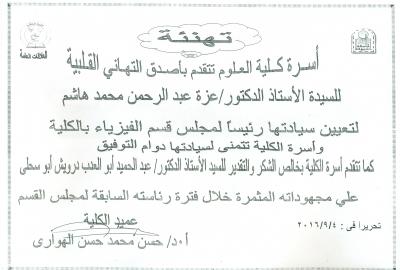 تهنئة
أسرة كلية العلوم تتقدم بأصدق التهاني القلبية
للسيدة الأستاذ الدكتور/عزة عبد الرحمن محمد هاشم
لتعيين سيادتها رئيساً لمجلس قسم الفيزياء بالكلية
وأسرة الكلية تتمنى لسيادتها دوام التوفيق
كما تتقدم أسرة الكلية بخالص الشكر والتقدير للسيد الأستاذ الدكتور/ عبد الحميد أبو العنب درويش أبو سطى
علي مجهوداته المثمرة خلال فترة رئاسته السابقة لمجلس القسم
عميد الكلية
تحريرا فى : ٢٠١٦/٩/٤
أ.د/ حسن محمد حسن الهوارى